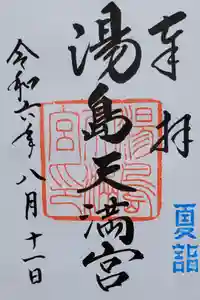 奉拝
夏詣
湯島天満宮
令和六年八月十一日